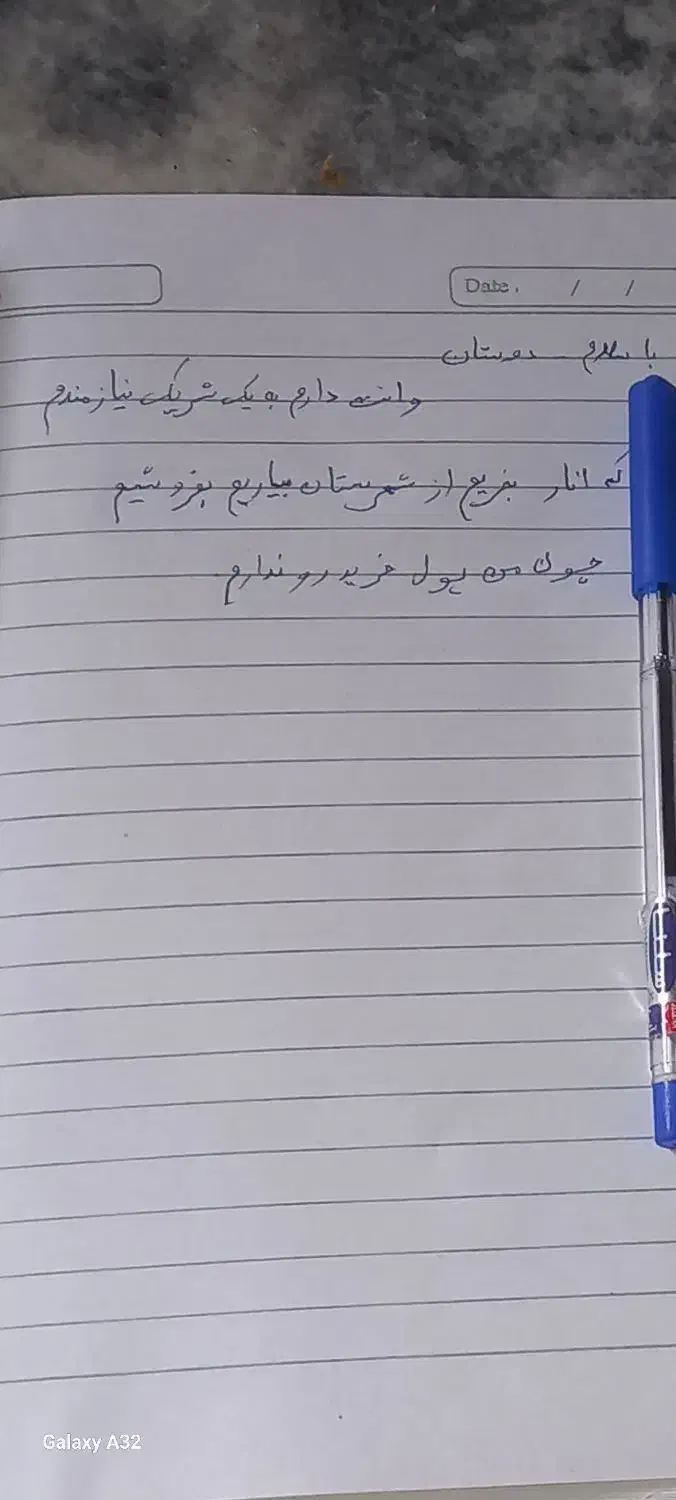 Date. / /
با سلام دوستان
وانت دارم به یک شریک نیازمندم
که انار بخریم از شهرستان بیاریم بفروشیم
چون من پول خرید رو ندارم
Galaxy A32